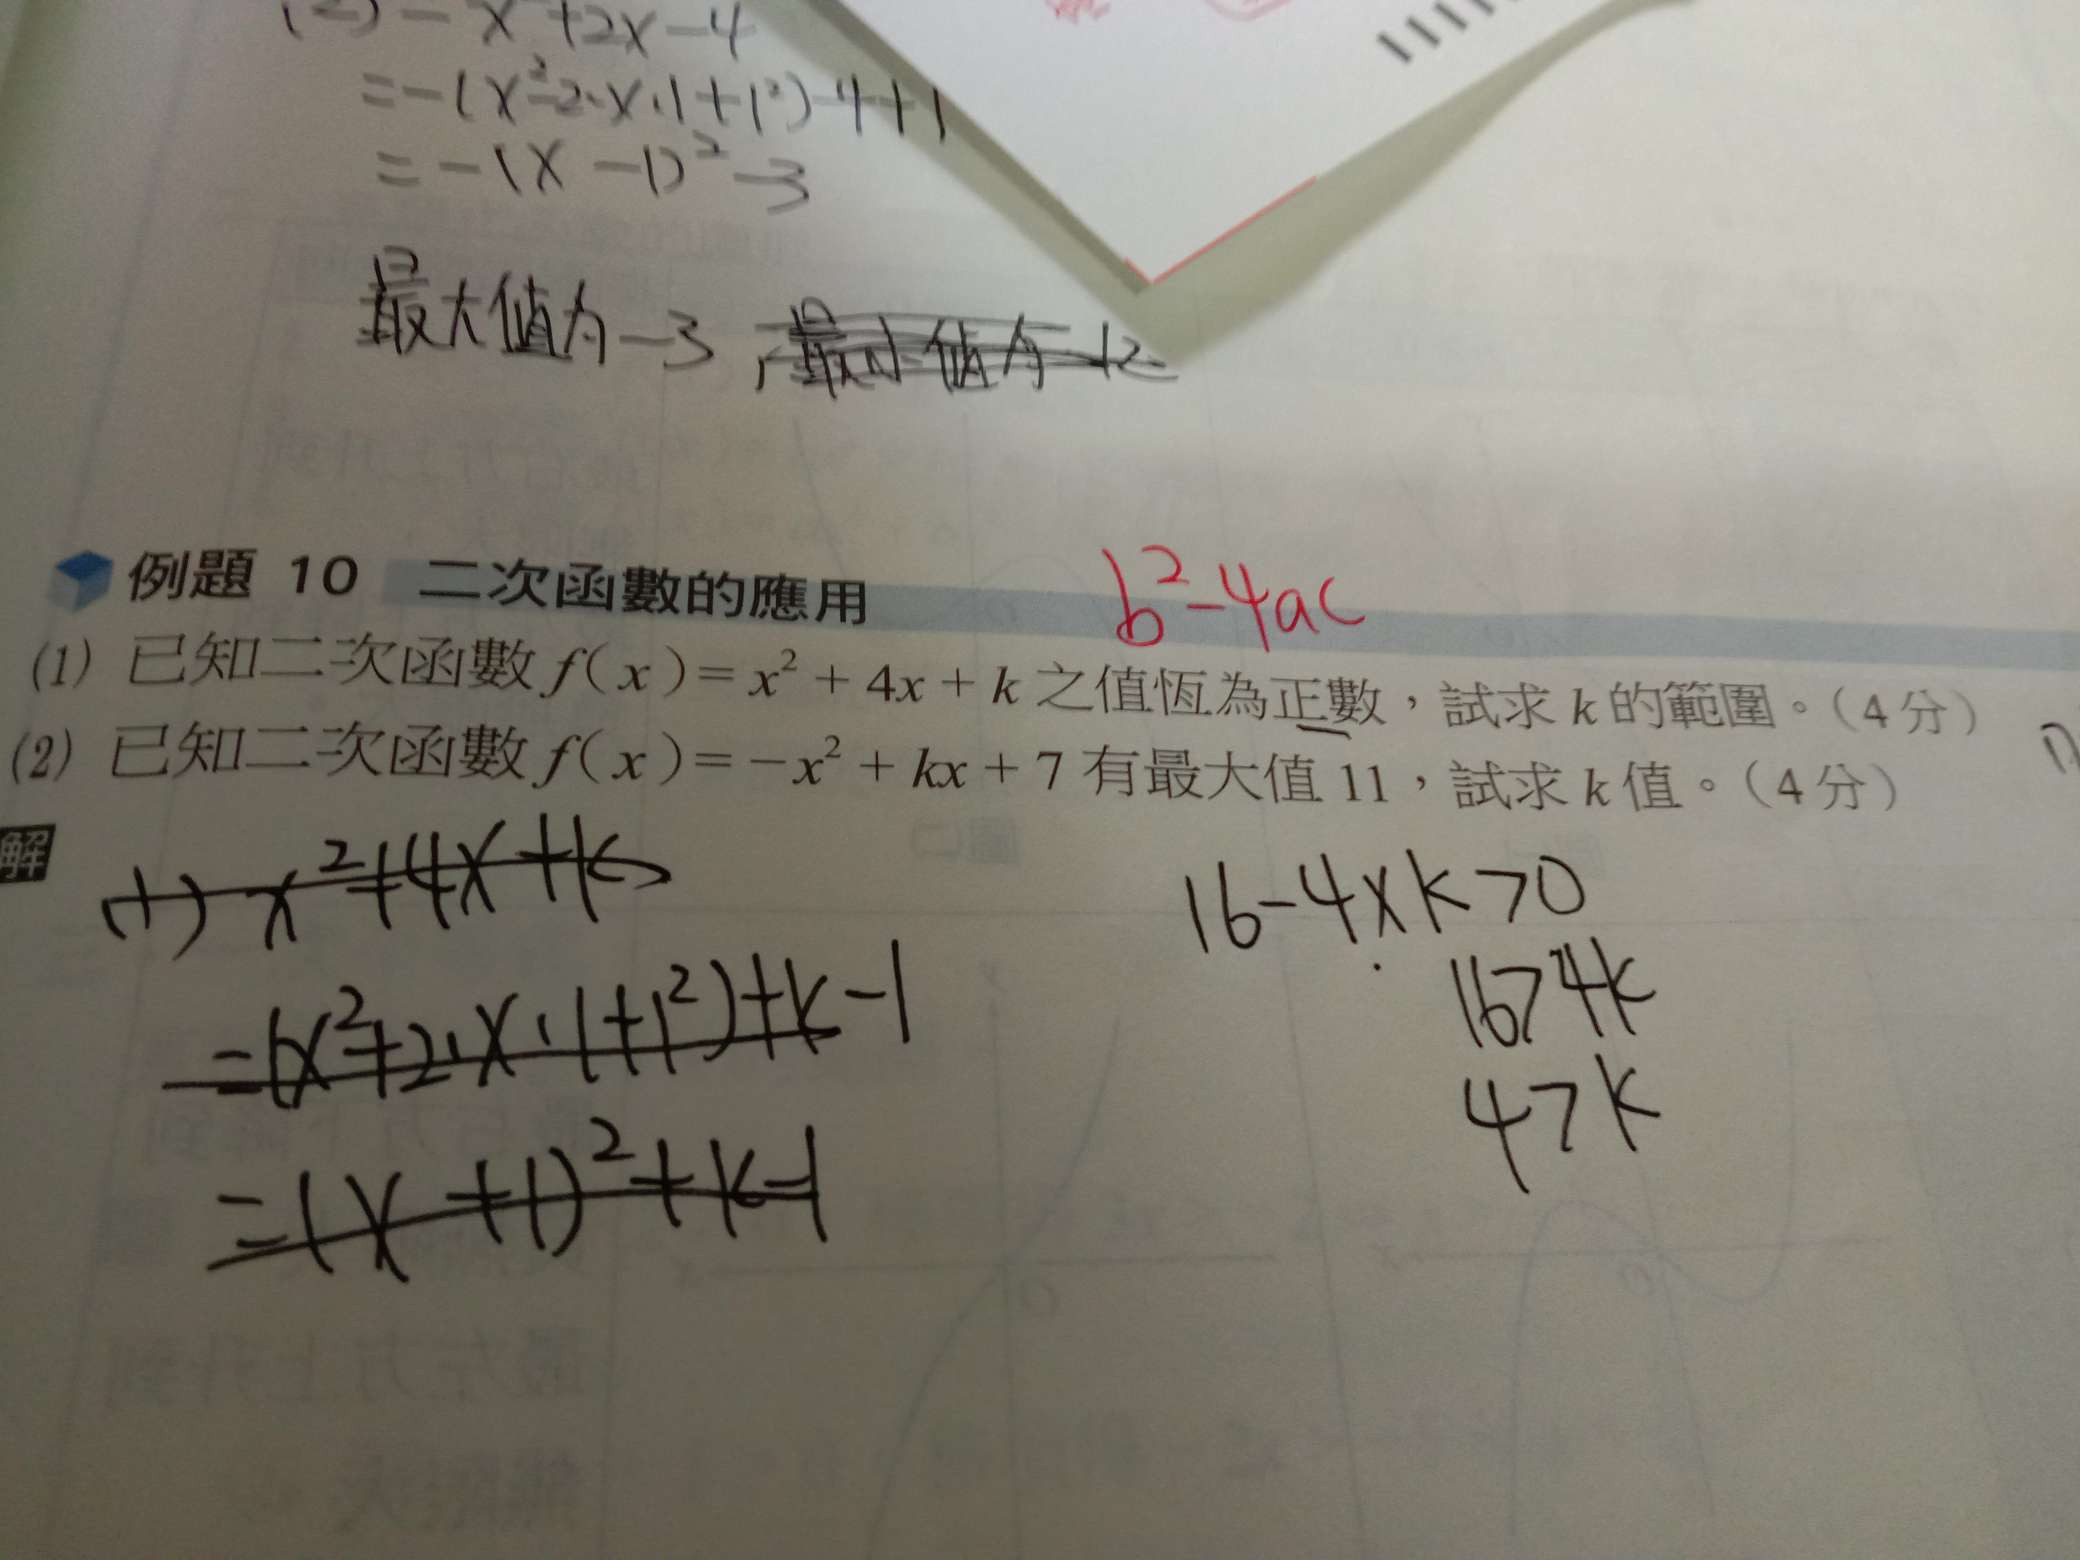 (2) -x²+2x-4
=-(x²-2·x·1+1²)-4+1
=-(x-1)²-3
最大值為-3,最小值為-12
例題 10 二次函數的應用
b²-4ac
(1) 已知二次函數 f(x)=x²+4x+k 之值恆為正數,試求 k 的範圍。(4分)
(2) 已知二次函數 f(x)=-x²+kx+7 有最大值 11,試求 k 值。(4分)
解
(1) x²+4x+k
=(x²+2·x·1+1²)+k-1
=(x+1)²+k-1
16-4×k>0
16>4k
4>k